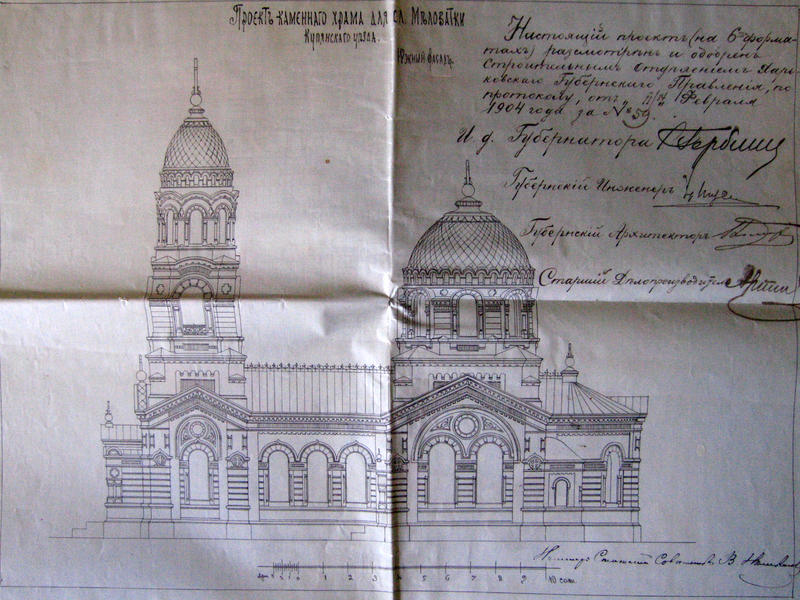 Проектъ каменнаго храма для сл. Мѣловатки
Купянскаго уѣзда.
Южный фасадъ.
Настоящій проектъ (на 6 форма-
тахъ) разсмотрѣнъ и одобренъ
Строительнымъ Отдѣленіемъ Харь-
ковскаго Губернскаго Правленія, по
протоколу, отъ Февраля
1904 года за № 59.
И. д. Губернатора
Губернскій Инженеръ
Губернскій Архитекторъ
Старшій Дѣлопроизводитель
1 2 3 4 5 6 7 8 9 10 саж.